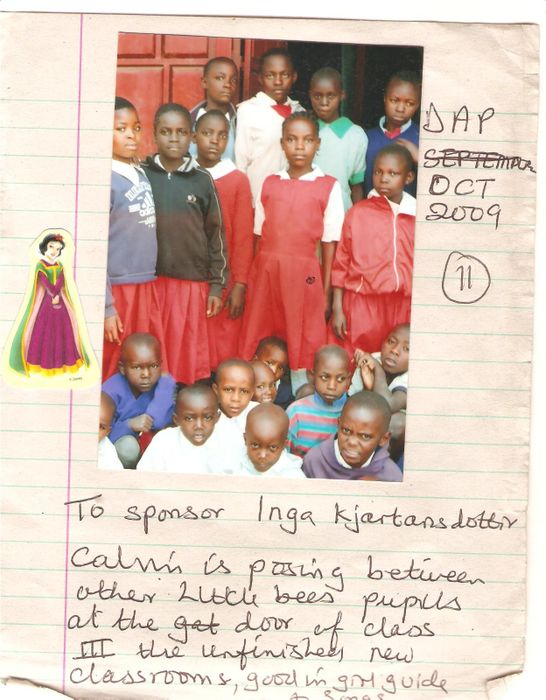 DAP
SEPTEMPER
OCT
2009
11
To sponsor Inga Kjartansdottir
Calvin is posing between
other Little bees pupils
at the gat door of class
III the unfinished new
classrooms, good in girl guide
& songs